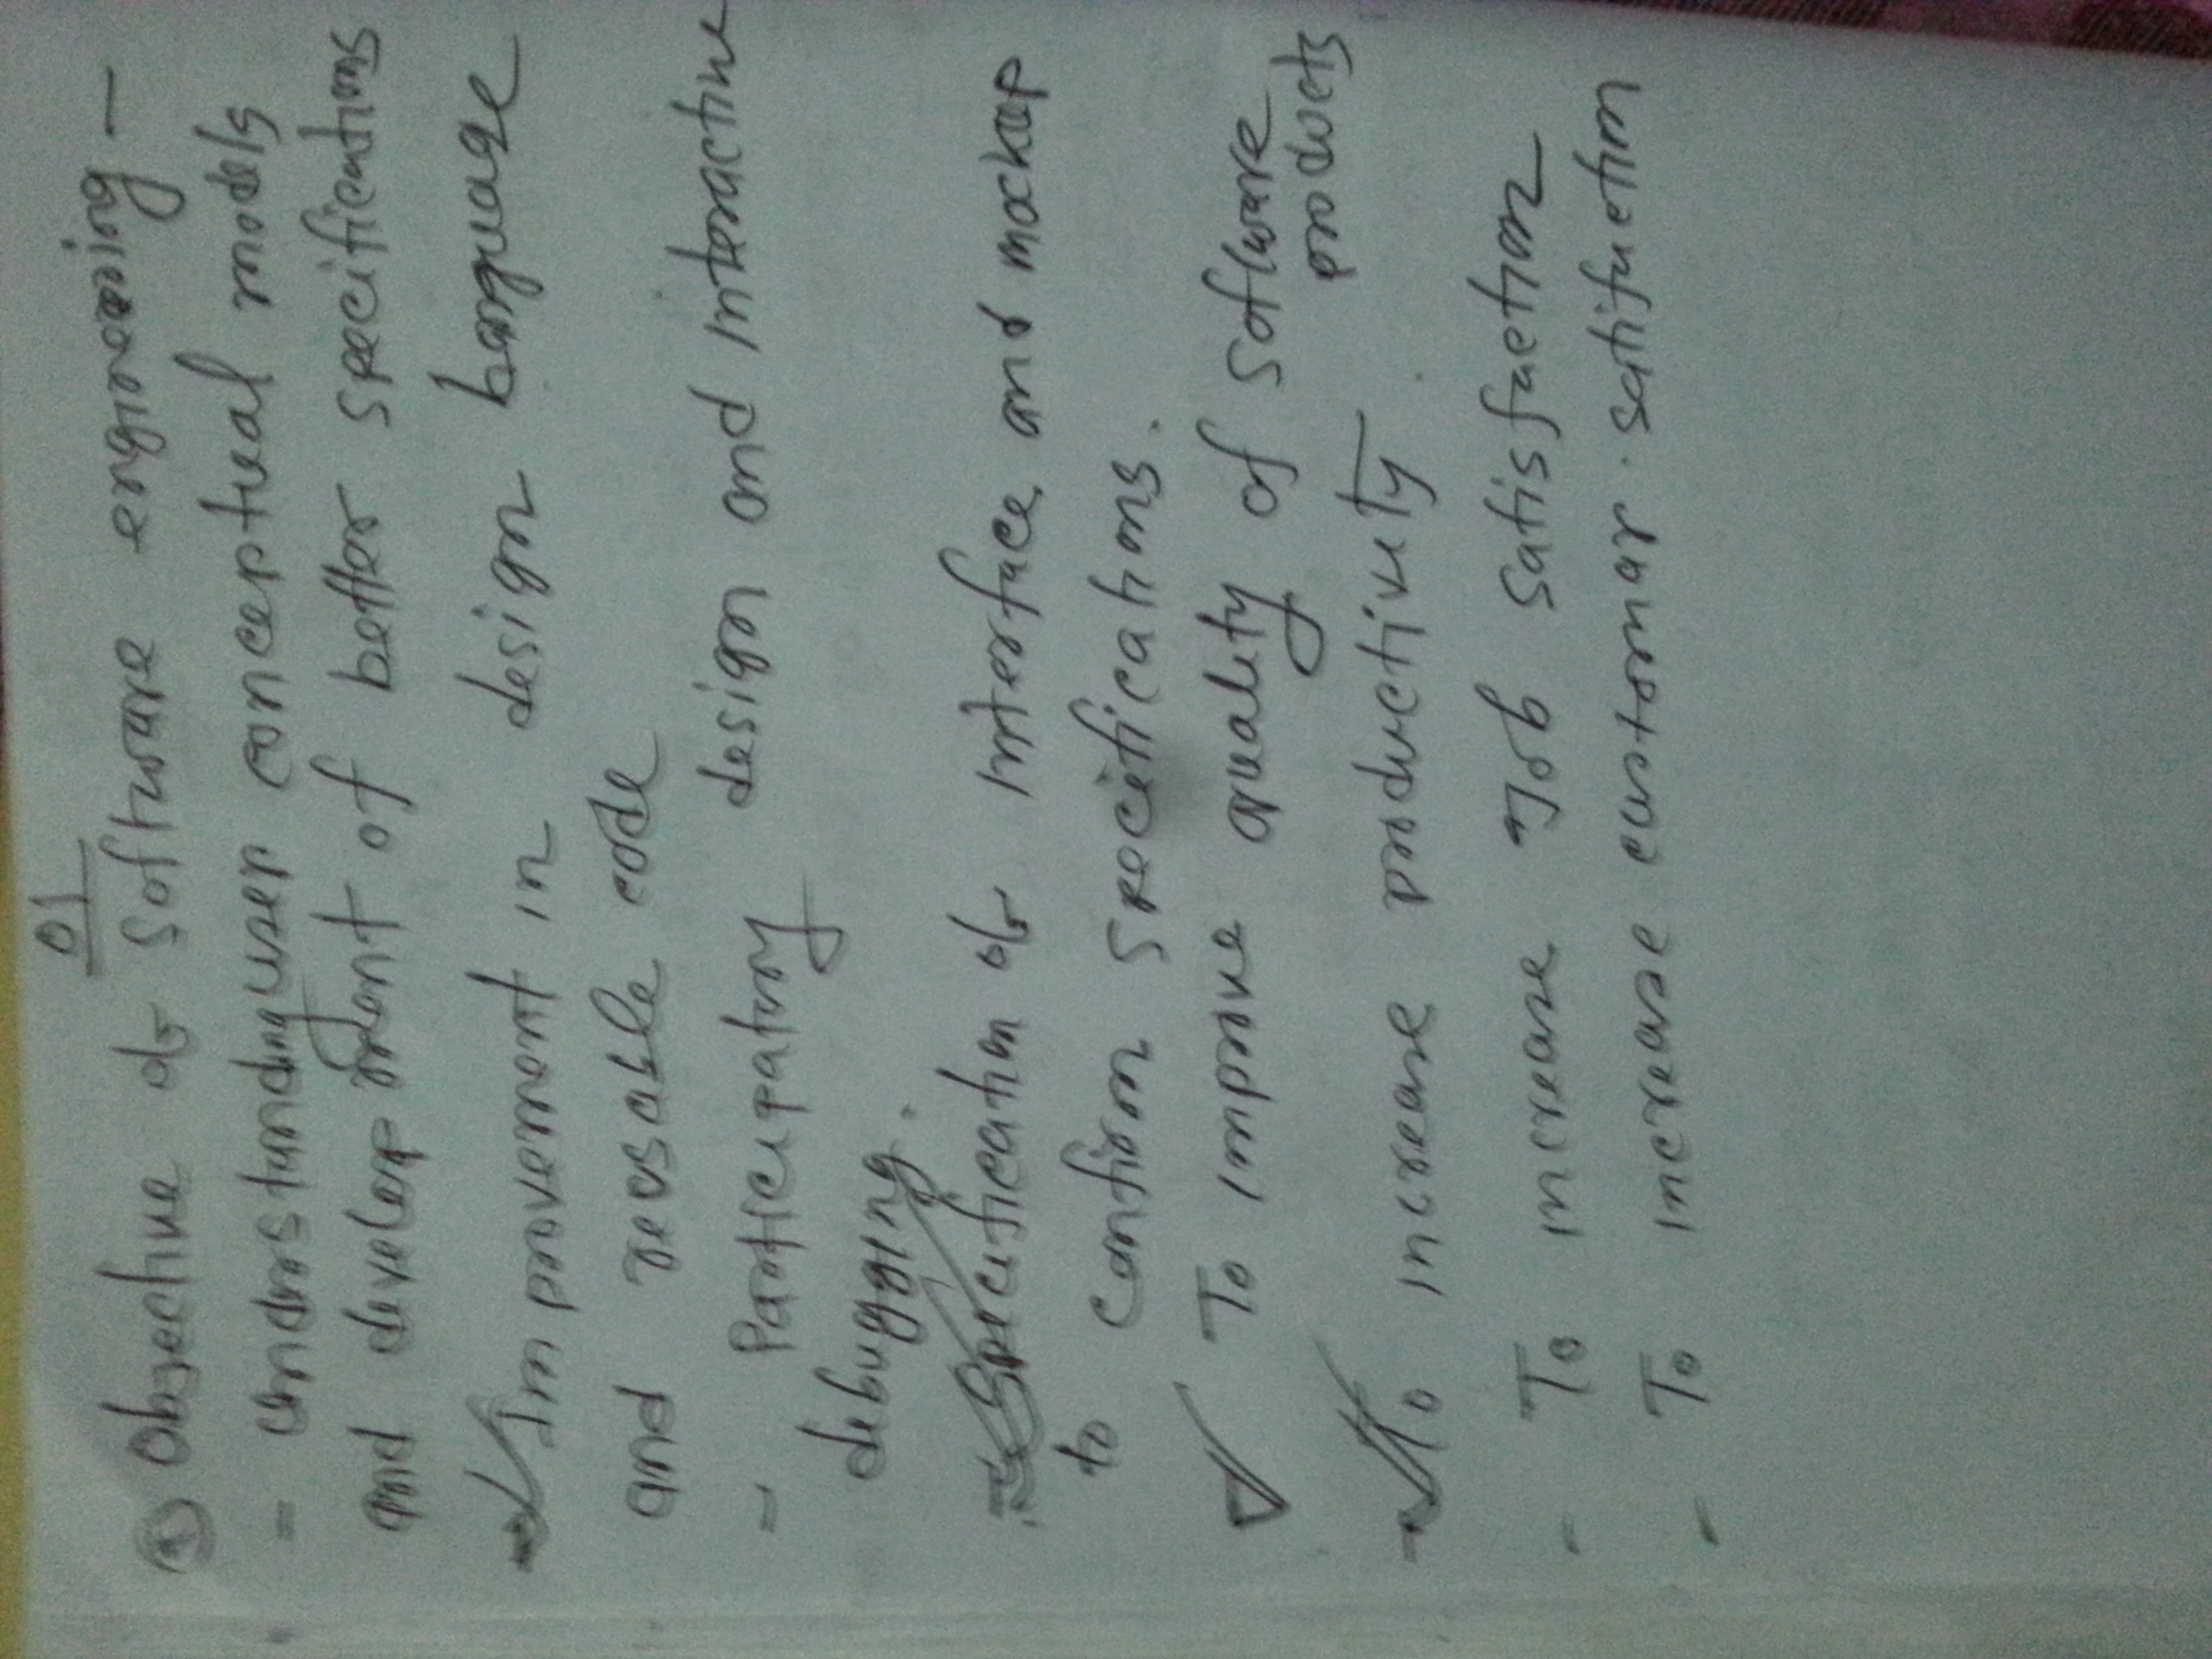 01
Objective of Software engineering —
- Understanding user conceptual models
and development of better specifications
- Improvement in design language
and reusable code
- Participatory design and interactive
debugging.
- Specification of interface and mockup
to confirm specifications.
To improve quality of software
products
- To increase productivity.
- To increase Job satisfaction
- To increase customar satifaction